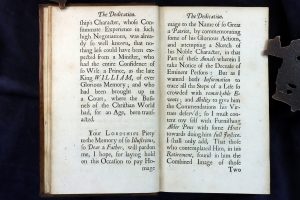 The Dedication.
thips Character, whose Con-
summate Experience in such
high Negotiations, was alrea-
dy so well known, that no-
thing less could have been ex-
pected from a Minister, who
had the entire Confidence of
so Wise a Prince, as the late
King WILLIAM, of ever
Glorious Memory; and who
had been brought up in
a Court, where the Busi-
ness of the Christian World
had, for an Age, been trans-
acted.
YOUR LORDSHIPS Piety
to the Memory of so Illustrious,
so Dear a Father, will pardon
me, I hope, for laying hold
on this Occasion to pay Ho-
mage
The Dedication.
mage to the Name of so Great
a Patriot, by commemorating
some of his Glorious Actions,
and attempting a Sketch of
his Noble Character, in that
Part of these Annals wherein I
take Notice of the Decease of
Eminent Persons: But as I
wanted both Information to
trace all the Steps of a Life so
crowded with remarkable E-
vents; and Ability to give him
the Commendations his Ver-
tues deserv'd; so I must con-
tent my self with Furnishing
Abler Pens with some Hints
towards doing him full Justice.
I shall only add, That those
who contemplated Him, in his
Retirement, found in him the
Combined Image of those
Two